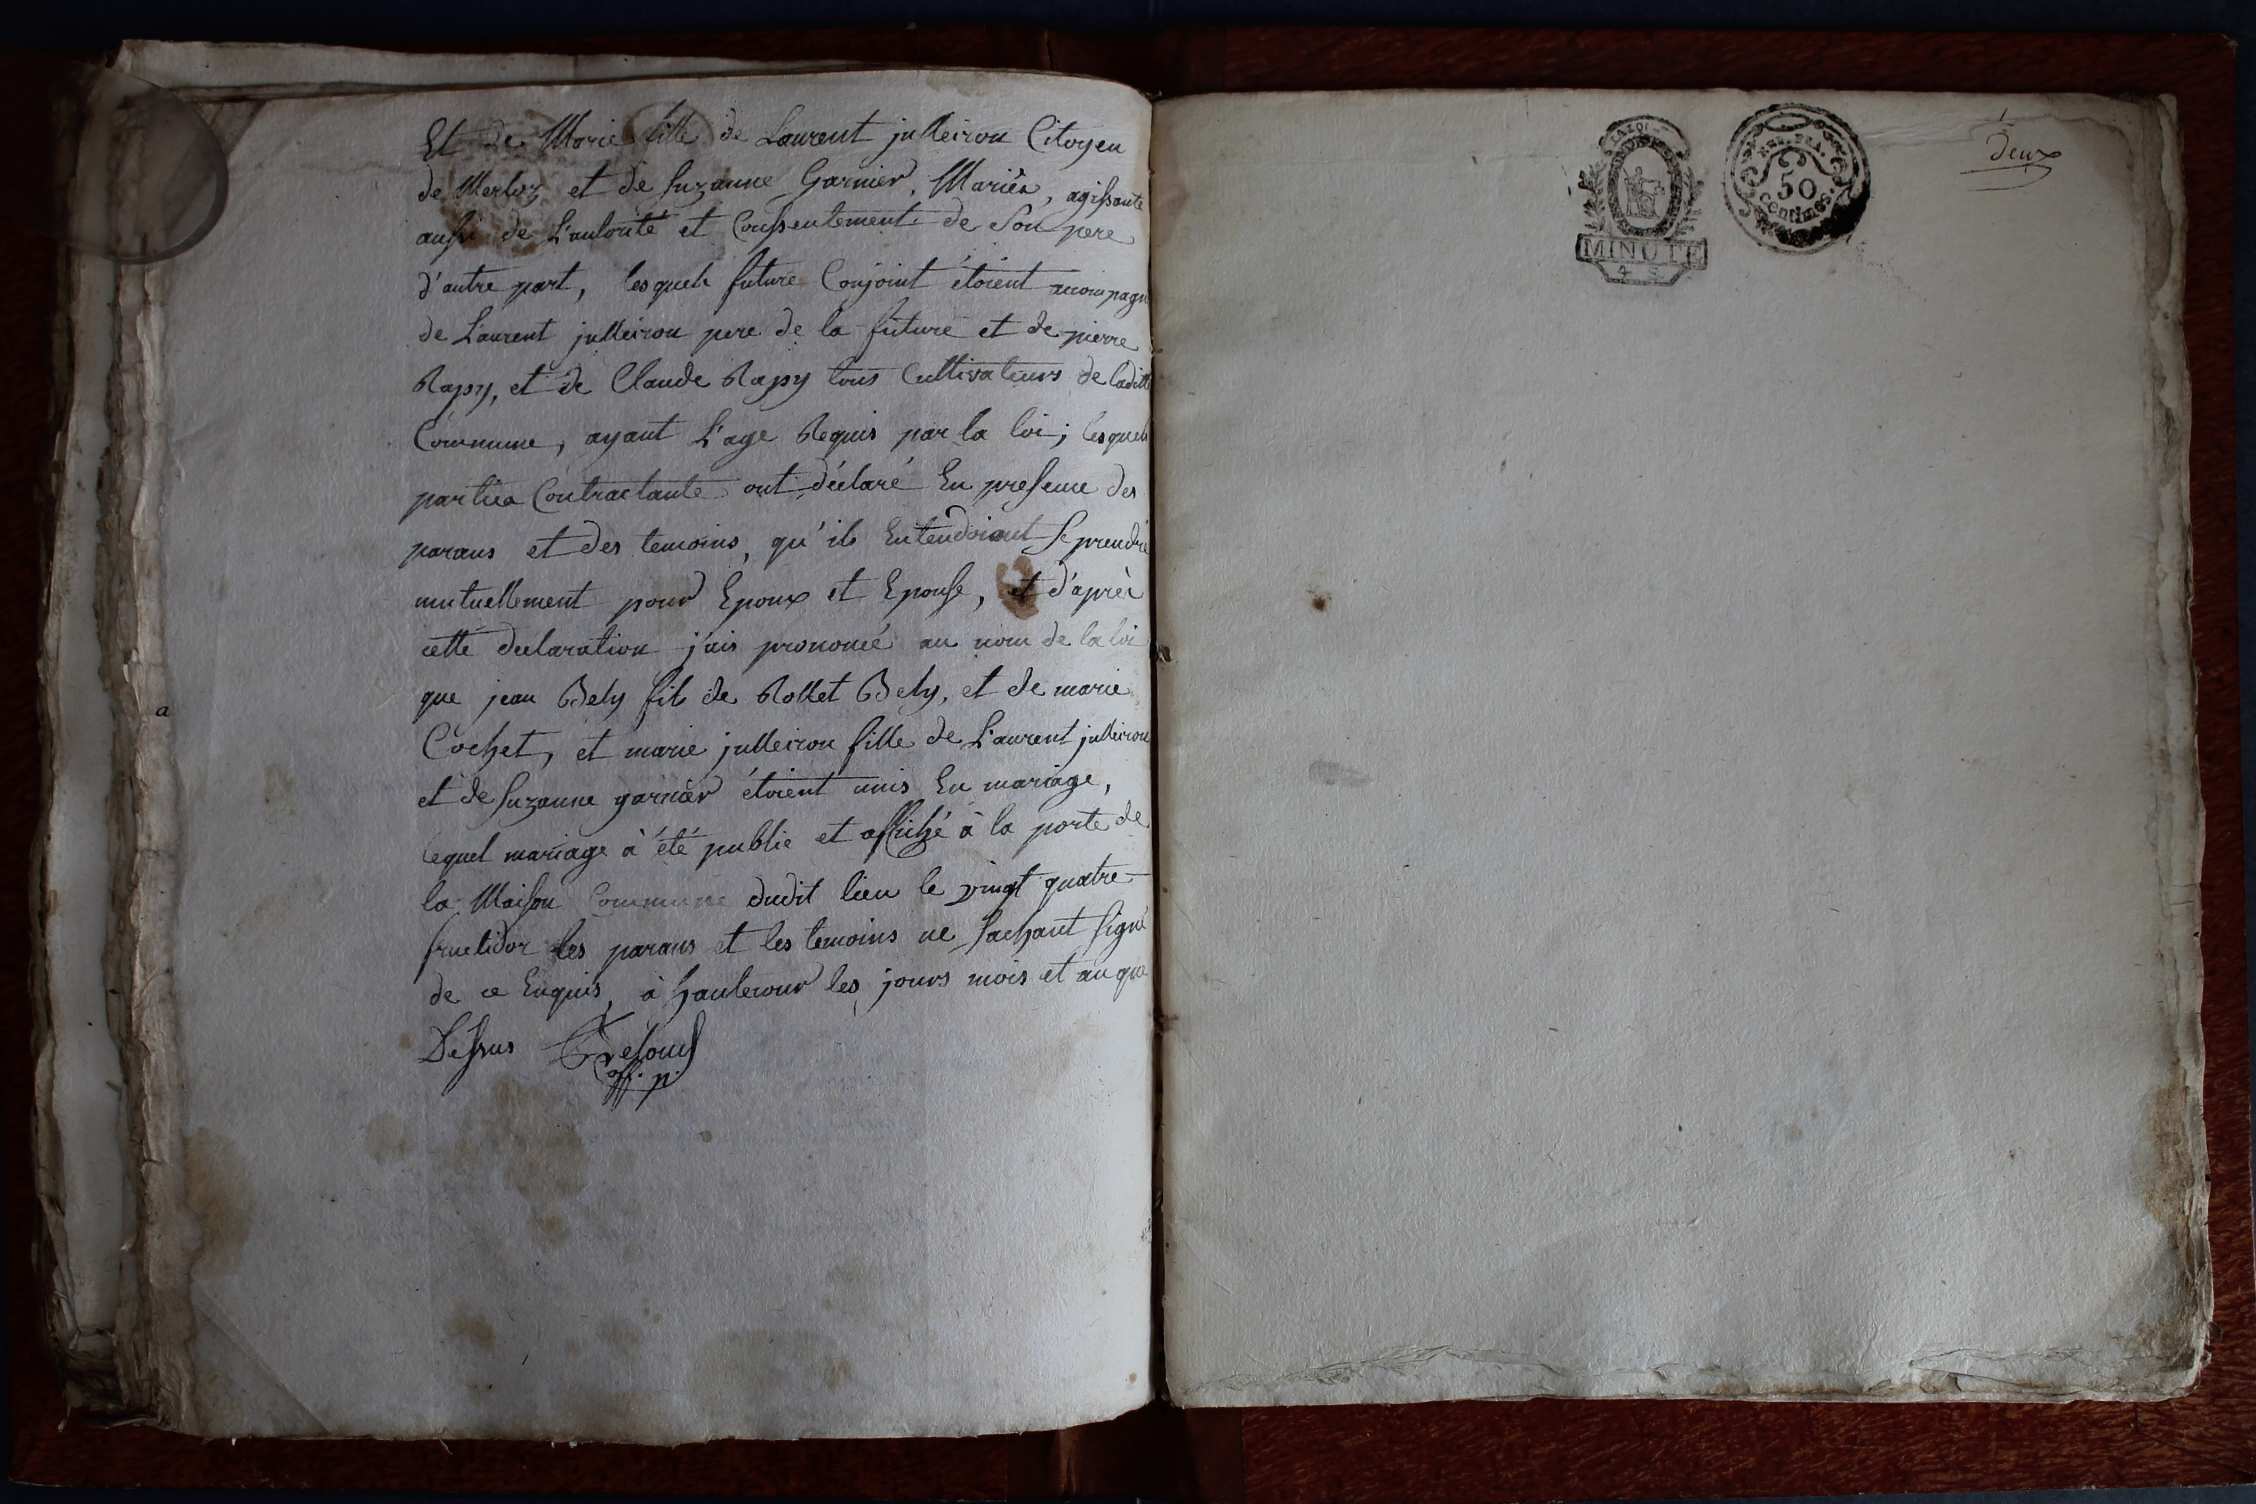 Et de Marie fille de Laurent julleiron Citoyen
de Merloz et de Suzanne Garnier, Mariés, agissante
aussi de L'autorité et Conssentement de Son pere
d'autre part, lesquels future Conjoint étoient accompagn
de Laurent julleiron pere de la future et de pierre
Rapy, et de Claude Rapy tous Cultivateurs de ladite
Commune, ayant L'age Requis par la loi; lesquels
parties Contractante ont déclaré En presence des
parans et des temoins, qu'ils Entendoient Se prendre
mutuellement pour Epoux et Epouse, et d'après
cette declaration j'ais prononcé au nom de la loi
que jean Bely fils de Rollet Bely, et de marie
Cochet, et marie julleiron fille de Laurent julleiron
et de Suzanne garnier étoient unis En mariage,
lequel mariage à été publié et affiché à la porte de
la Maison Commune dudit lieu le vingt quatre
fructidor les parans et les temoins ne Sachant Signé
de ce Enquis, à hautecour les jours mois et an que
Dessus
off. p.
a
LA LOI
MINUTE
4 5
REP. FRA.
50
centimes.
deux